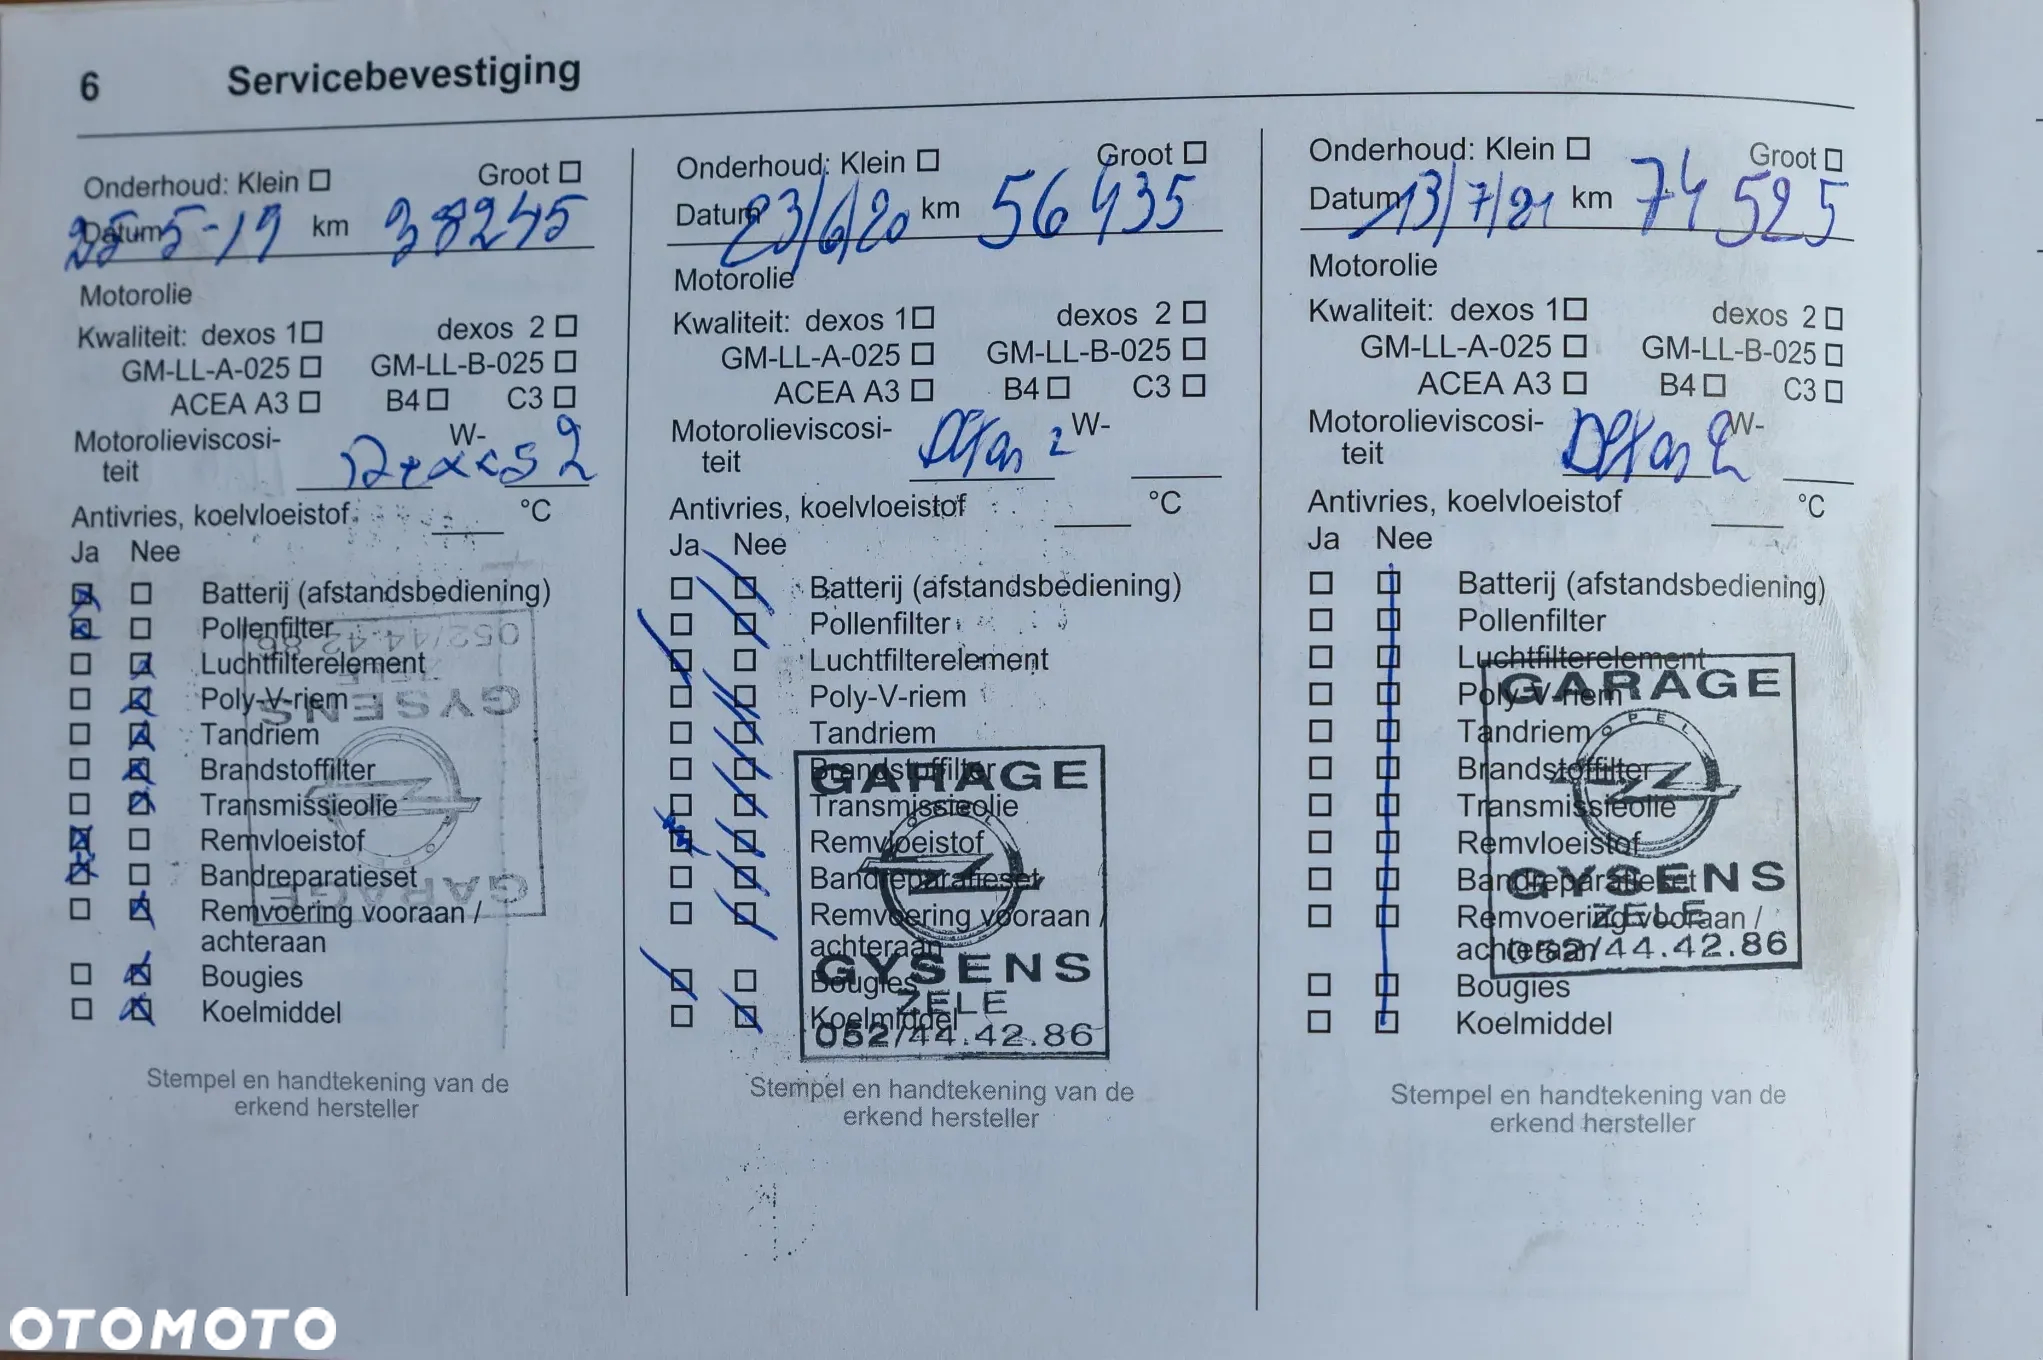 6 Servicebevestiging
Onderhoud: Klein Groot
Datum 25-5-19 km 38245
Motorolie
Kwaliteit: dexos 1 dexos 2
GM-LL-A-025 GM-LL-B-025
ACEA A3 B4 C3
Motorolieviscosi- W-
teit Dexos 2
Antivries, koelvloeistof °C
Ja Nee
Batterij (afstandsbediening)
Pollenfilter
Luchtfilterelement
Poly-V-riem
Tandriem
Brandstoffilter
Transmissieolie
Remvloeistof
Bandreparatieset
Remvoering vooraan /
achteraan
Bougies
Koelmiddel
052/44.42.86
GYSENS
OPEL
GARAGE
Stempel en handtekening van de
erkend hersteller
Onderhoud: Klein Groot
Datum 23/6/20 km 56435
Motorolie
Kwaliteit: dexos 1 dexos 2
GM-LL-A-025 GM-LL-B-025
ACEA A3 B4 C3
Motorolieviscosi- W-
teit 2
Antivries, koelvloeistof °C
Ja Nee
Batterij (afstandsbediening)
Pollenfilter
Luchtfilterelement
Poly-V-riem
Tandriem
Brandstoffilter
Transmissieolie
Remvloeistof
Bandreparatieset
Remvoering vooraan /
achteraan
Bougies
Koelmiddel
GARAGE
GYSENS
ZELE
052/44.42.86
Stempel en handtekening van de
erkend hersteller
Onderhoud: Klein Groot
Datum 13/7/21 km 74525
Motorolie
Kwaliteit: dexos 1 dexos 2
GM-LL-A-025 GM-LL-B-025
ACEA A3 B4 C3
Motorolieviscosi- W-
teit 2
Antivries, koelvloeistof °C
Ja Nee
Batterij (afstandsbediening)
Pollenfilter
Luchtfilterelement
Poly-V-riem
Tandriem
Brandstoffilter
Transmissieolie
Remvloeistof
Bandreparatieset
Remvoering vooraan /
achteraan
Bougies
Koelmiddel
GARAGE
OPEL
GYSENS
ZELE
052/44.42.86
Stempel en handtekening van de
erkend hersteller
OTOMOTO